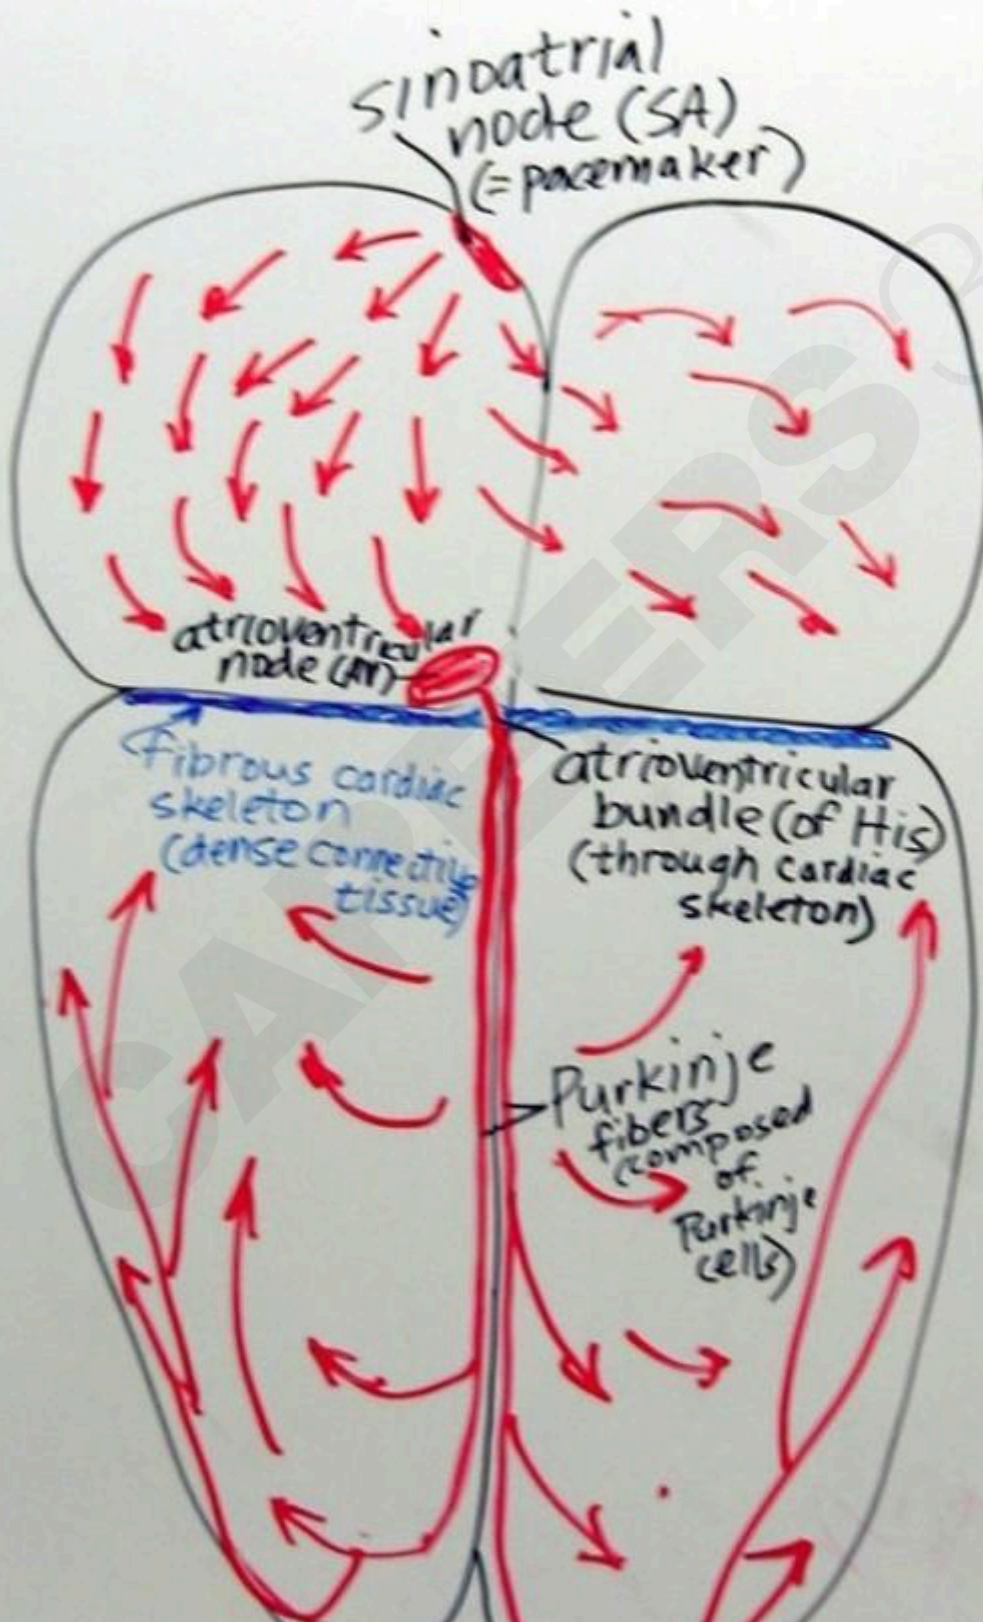 sinoatrial
node (SA)
(=pacemaker)
atrioventricular
node (AV)
Fibrous cardiac
skeleton
(dense connective
tissue)
atrioventricular
bundle (of His)
(through cardiac
skeleton)
Purkinje
fibers
(composed
of
Purkinje
cells)
CAREERS